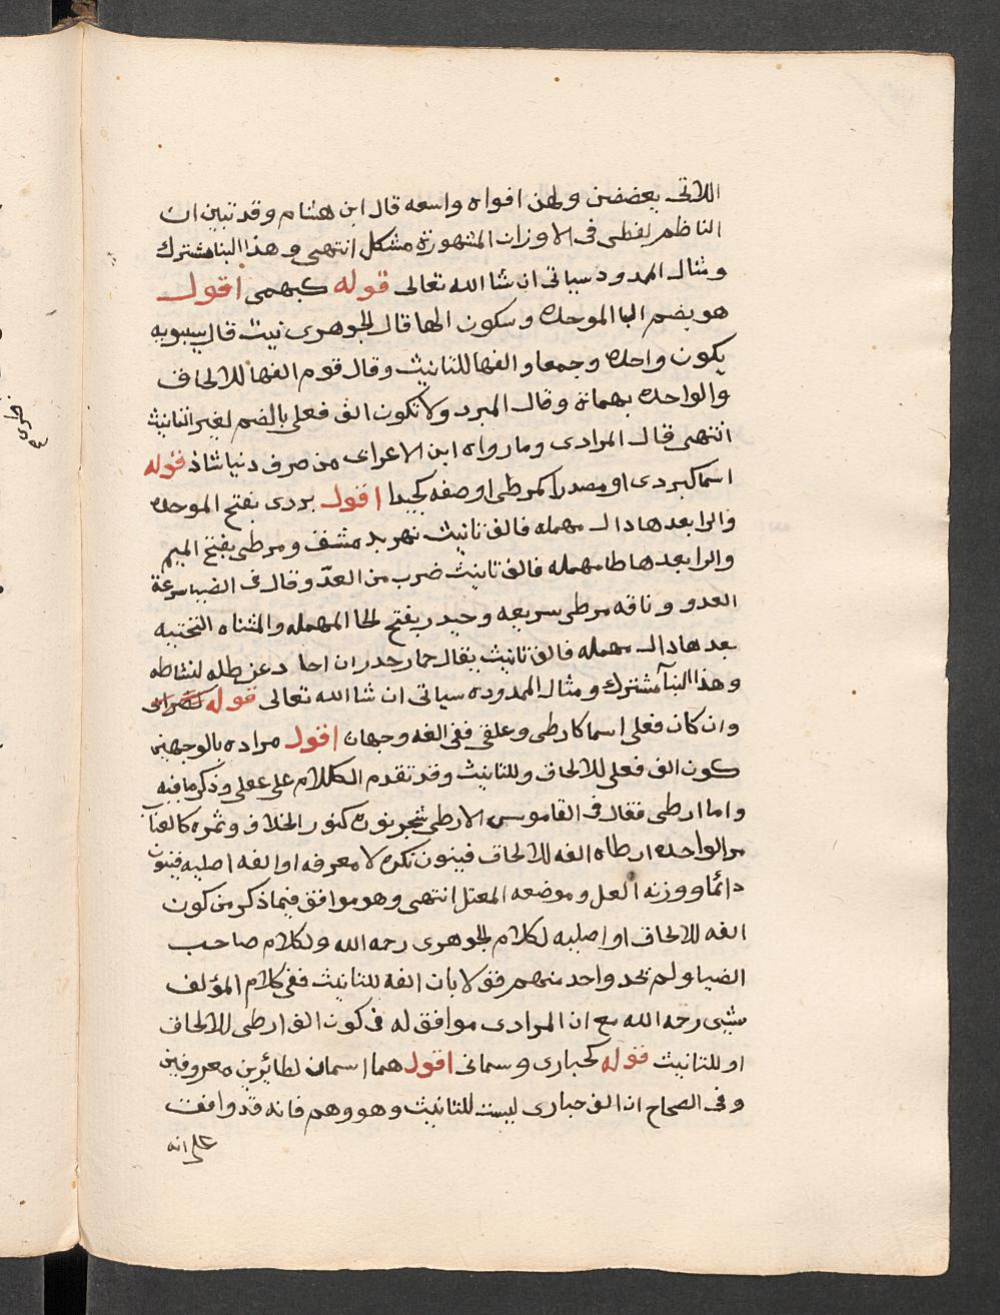 اللاتى يعضضن ولهن افواه واسعه قال ابن هشام وقد تبين ان
الناظم لفظى فى الاوزان المشهورة مشكل انتهى وهذا البنا مشترك
ومثال الممدود سياتى ان شا الله تعالى قوله كبهمى اقول
هو بضم البا الموحده وسكون الها قال الجوهرى نبت قال سيبويه
يكون واحده وجمعا والفها للتانيث وقال قوم الفها للالحاق
والواحده بهماة وقال المبرد ولا تكون الف فعلى بالضم لغير التانيث
انتهى قال المرادى وما رواه ابن الاعرابى من صرف دنيا شاذ قوله
اسما كبردى او مصدرا كمرطى او صفه كحيدا اقول بردى بفتح الموحده
والرا بعدها دال مهمله فالف تانيث نهر بدمشق ومرطى بفتح الميم
والرا بعدها طا مهمله فالف تانيث ضرب من العدو وقال فى الضيا سرعة
العدو وناقه مرطى سريعه وحيدى بفتح الحا المهمله والمثناه التحتيه
بعدها دال مهمله فالف تانيث يقال حمار حيدى ان احا دعن ظله لنشاطه
وهذا البنآ مشترك ومثال الممدوده سياتى ان شا الله تعالى قوله
وان كان فعلى اسما كارطى وعلقى ففى الفه وجهان اقول مراده بالوجهين
كون الف فعلى للالحاق وللتانيث وقد تقدم الكلام على عفلى وذكر ما فيه
واما ارطى فقال فى القاموس الارطى شجر نوره كنور الخلاف وثمره كالعناب
مر الواحده ارطاه الفه للالحاق فينون نكره لا معرفه او الفه اصليه فينون
دائما ووزنه افعل وموضعه المعتل انتهى وهو موافق فيما ذكر من كون
الفه للالحاق او اصليه لكلام الجوهرى رحمه الله ولكلام صاحب
الضيا ولم نجد واحد منهم قولا بان الفه للتانيث ففى كلام المؤلف
شيى رحمه الله مع ان المرادى موافق له فى كون الف ارطى للالحاق
او للتانيث قوله كحبارى وسمانى اقول هما اسمان لطائرين معروفين
وفى الصحاح ان الف حبارى ليست للتانيث وهو وهم فانه قد وافقت
على انه